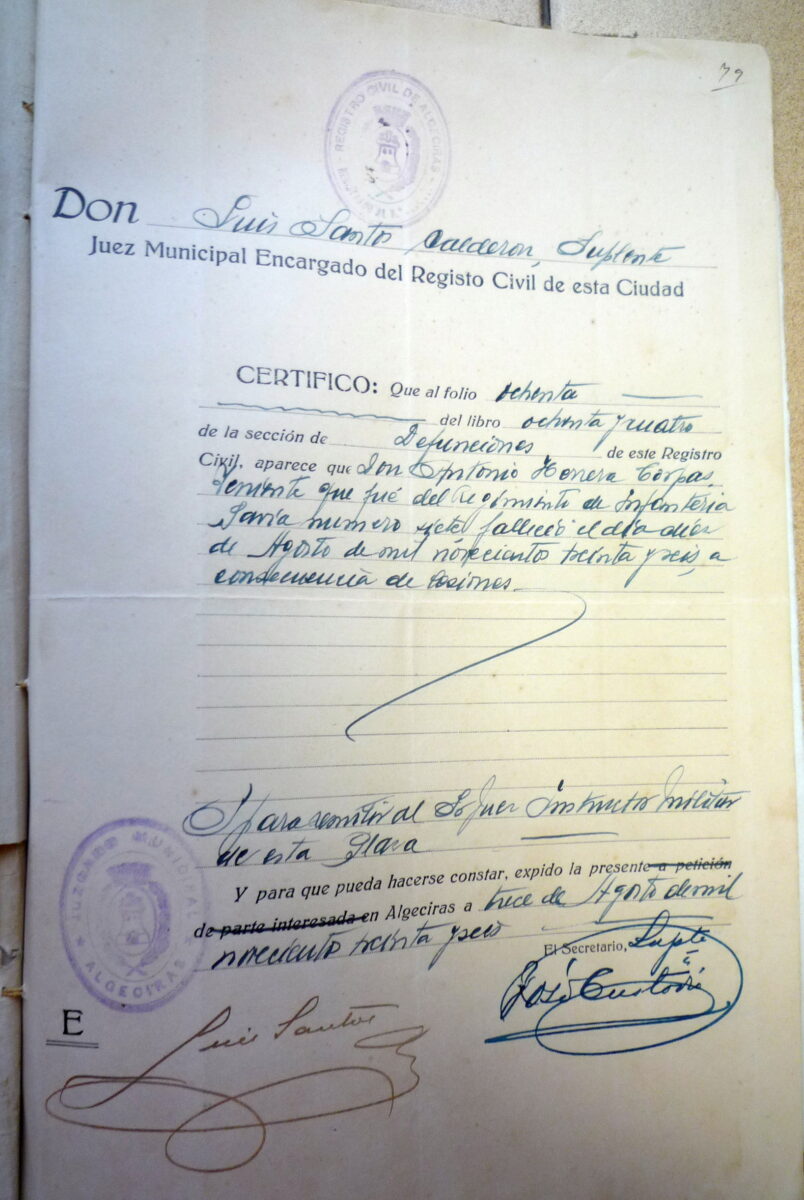 79
REGISTRO CIVIL DE ALGECIRAS
Don Luis Santos Calderon, Suplente
Juez Municipal Encargado del Registo Civil de esta Ciudad
CERTIFICO: Que al folio ochenta
del libro ochenta y cuatro
de la sección de Defunciones de este Registro
Civil, aparece que Don Antonio Herrera Corpas,
Teniente que fué del Regimiento de Infanteria
Pavia numero siete falleció el dia diez
de Agosto de mil novecientos treinta y seis, a
consecuencia de lesiones.
Y para remitir al Sr Juez Instructor Militar
de esta Plaza
Y para que pueda hacerse constar, expido la presente a petición
de parte interesada en Algeciras a trece de Agosto de mil
novecientos treinta y seis
El Secretario, Supte
José Custodi
JUZGADO MUNICIPAL
ALGECIRAS
E
Luis Santos